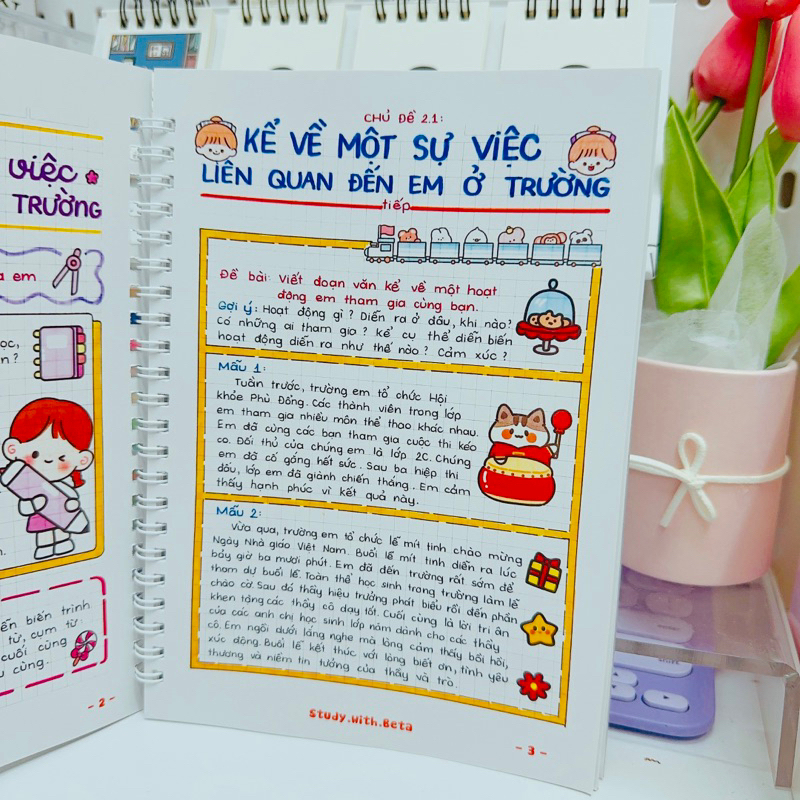 việc
TRƯỜNG
a em
ọc,
n?
n.
ến biến trình
từ, cụm từ
cuối cùng
u cùng.
- 2 -
CHỦ ĐỀ 2.1:
KỂ VỀ MỘT SỰ VIỆC
LIÊN QUAN ĐẾN EM Ở TRƯỜNG
tiếp
Đề bài: Viết đoạn văn kể về một hoạt
động em tham gia cùng bạn.
Gợi ý: Hoạt động gì? Diễn ra ở đâu, khi nào?
Có những ai tham gia? Kể cụ thể diễn biến
hoạt động diễn ra như thế nào? Cảm xúc?
Mẫu 1:
Tuần trước, trường em tổ chức Hội
khỏe Phù Đổng. Các thành viên trong lớp
em tham gia nhiều môn thể thao khác nhau.
Em đã cùng các bạn tham gia cuộc thi kéo
co. Đối thủ của chúng em là lớp 2C. Chúng
em đã cố gắng hết sức. Sau ba hiệp thi
đấu, lớp em đã giành chiến thắng. Em cảm
thấy hạnh phúc vì kết quả này.
Mẫu 2:
Vừa qua, trường em tổ chức lễ mít tinh chào mừng
Ngày Nhà giáo Việt Nam. Buổi lễ mít tinh diễn ra lúc
bảy giờ ba mươi phút. Em đã đến trường rất sớm để
tham dự buổi lễ. Toàn thể học sinh trong trường làm lễ
chào cờ. Sau đó thầy hiệu trưởng phát biểu rồi đến phần
khen tặng các thầy cô dạy tốt. Cuối cùng là lời tri ân
của các anh chị học sinh lớp năm dành cho các thầy
cô. Em ngồi dưới lắng nghe mà lòng cảm thấy bồi hồi,
xúc động. Buổi lễ kết thúc với lòng biết ơn, tình yêu
thương và niềm tin tưởng của thầy và trò.
Study.With.Beta
- 3 -